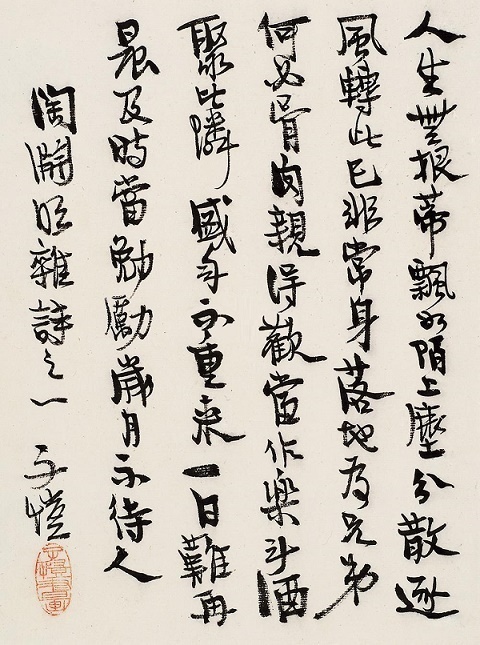 人生無根蒂飄如陌上塵分散逐
風轉此已非常身落地為兄弟
何必骨肉親得歡當作樂斗酒
聚比隣盛年不重来一日難再
晨及時當勉勵歲月不待人
陶淵明雜詩之一 子愷